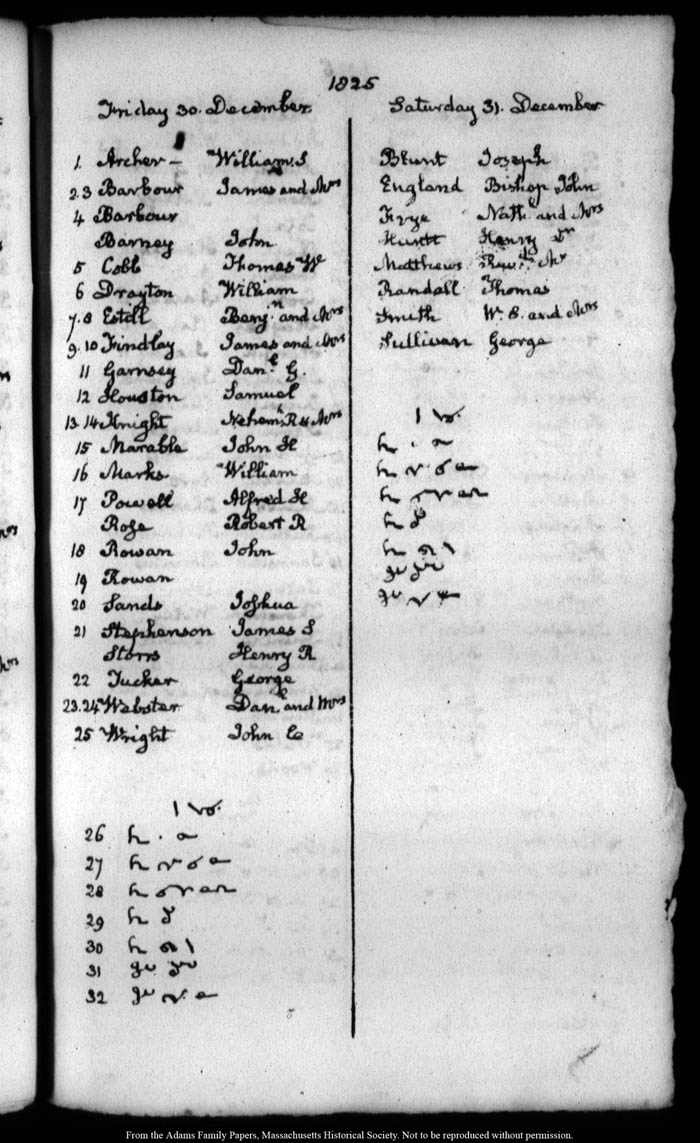 1825
Friday 30. December
1. Archer – William. S
2.3 Barbour James and Mrs
4 Barbour
Barney John
5 Cobb Thomas W
6 Drayton William
7.8 Estill Benj.n and Mrs
9.10 Findlay James and Mrs
11 Garnsey Dan.l G.
12 Houston Samuel
13.14 Knight Nehem.h R & Mrs
15 Marable John H
16 Marks William
17 Powell Alfred H
Rose Robert R
18 Rowan John
19 Rowan
20 Sands Joshua
21 Stephenson James S
Storrs Henry R
22 Tucker George
23.24 Webster Dan.l and Mrs
25 Wright John C
26
27
28
29
30
31
32
Saturday 31. December
Blunt Joseph
England Bishop John
Frye Nath.l and Mrs
Huntt Henry Dr
Matthews Rev.d Mr
Randall Thomas
Smith W. B. and Mrs
Sullivan George
From the Adams Family Papers, Massachusetts Historical Society. Not to be reproduced without permission.